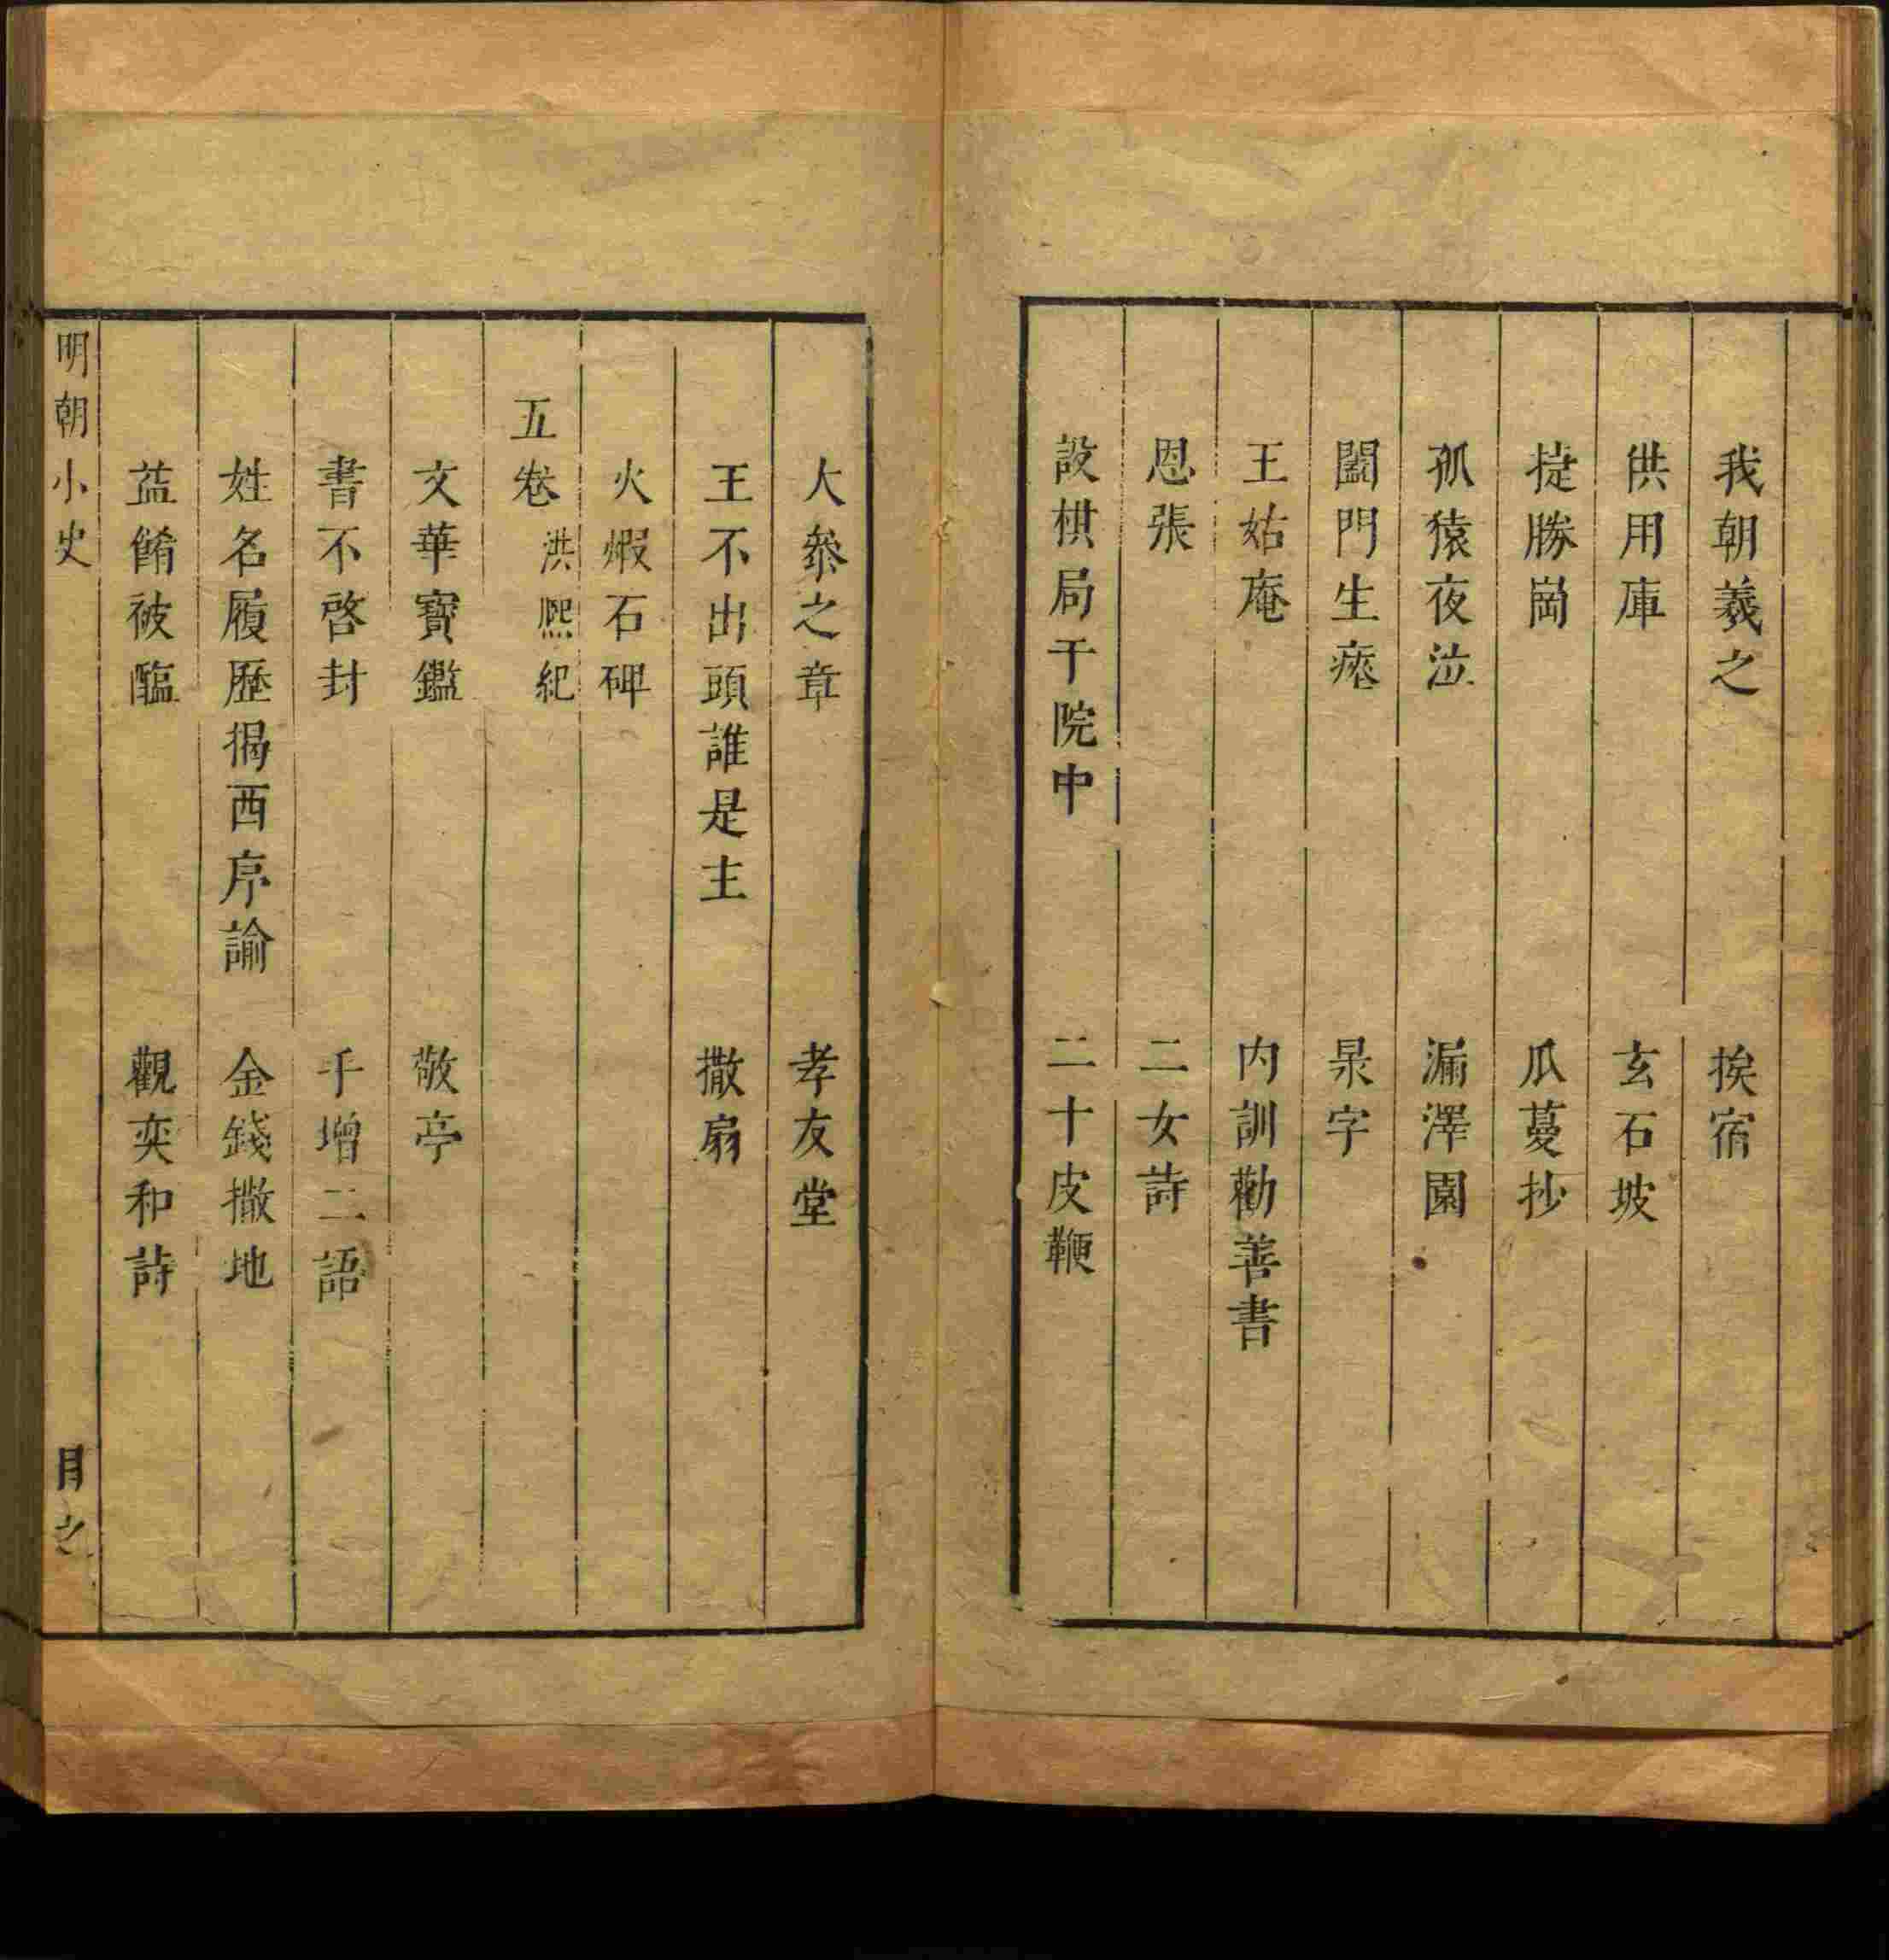 我朝羲之　挨宿
供用庫　玄石坡
捷勝岡　瓜蔓抄
孤猿夜泣　漏澤園
闔門生瘞　杲字
王姑庵　内訓勸善書
恩張　二女詩
設棋局于院中　二十皮鞭
大叅之章　孝友堂
王不出頭誰是主　撒扇
火煆石碑
五卷　洪熈紀
文華寶鑑　敬亭
書不啓封　手增二語
姓名履歷揭西序諭　金錢撒地
葅餚被醢　觀奕和詩
明朝小史　目